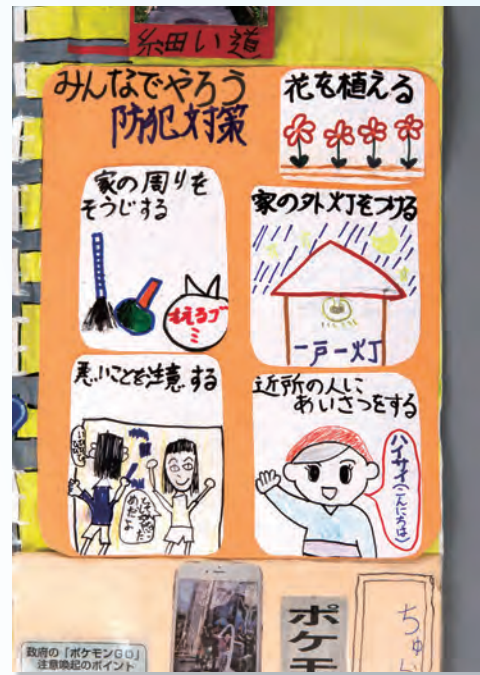 細い道
みんなでやろう
防犯対策
花を植える
家の周りを
そうじする
もえるゴ
ミ
家の外灯をつける
一戸一灯
悪いことを注意する
近所の人に
あいさつをする
ハイサイ(こんにちは)
政府の「ポケモンGO」
注意喚起のポイント
ポケモ
ちゅら